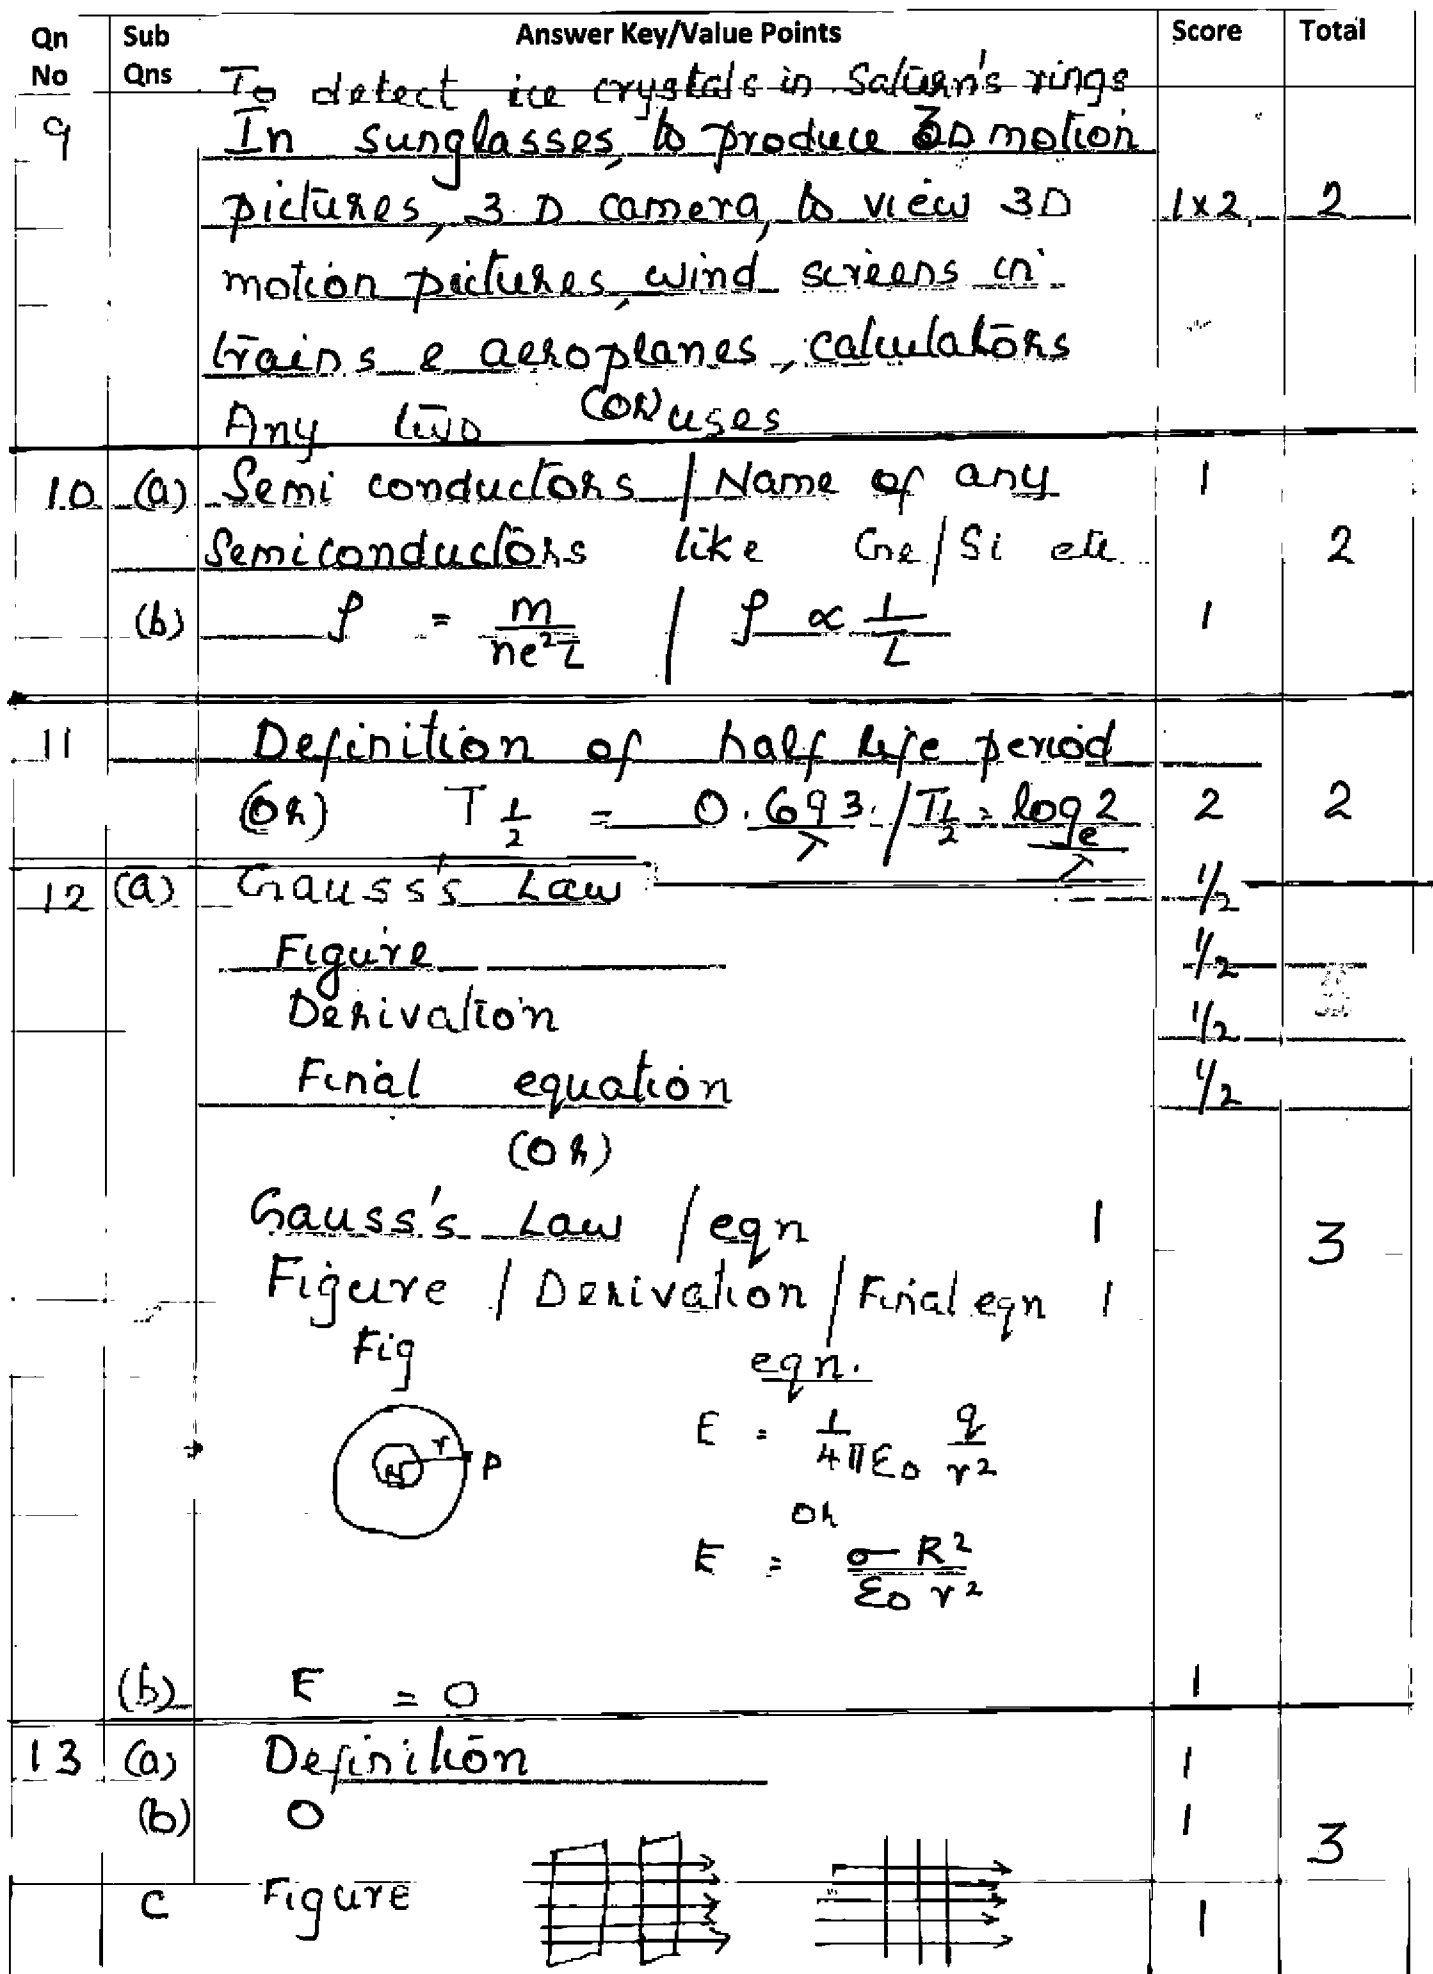 Qn No Sub Qns Answer Key/Value Points Score Total
To detect ice crystals in Saturn's rings
9 In sunglasses, to produce 3D motion
pictures, 3 D camera, to view 3D 1x2 2
motion pictures, wind screens in
trains & aeroplanes, calculators
Any two (or) uses
10 (a) Semi conductors / Name of any 1
Semiconductors like Ge/Si etc 2
(b) ρ = m/ne²τ / ρ ∝ 1/τ 1
11 Definition of half life period
(or) T 1/2 = 0.693/λ / T 1/2 = logₑ2/λ 2 2
12 (a) Gauss's Law 1/2
Figure 1/2
Derivation 1/2
Final equation 1/2
(Or)
Gauss's Law / eqn 1 3
Figure / Derivation / Final eqn 1
Fig eqn.
R r P E = 1/4πε₀ q/r²
Or
E = σR²/ε₀r²
(b) E = 0 1
13 (a) Definition 1
(b) 0 1 3
c Figure 1